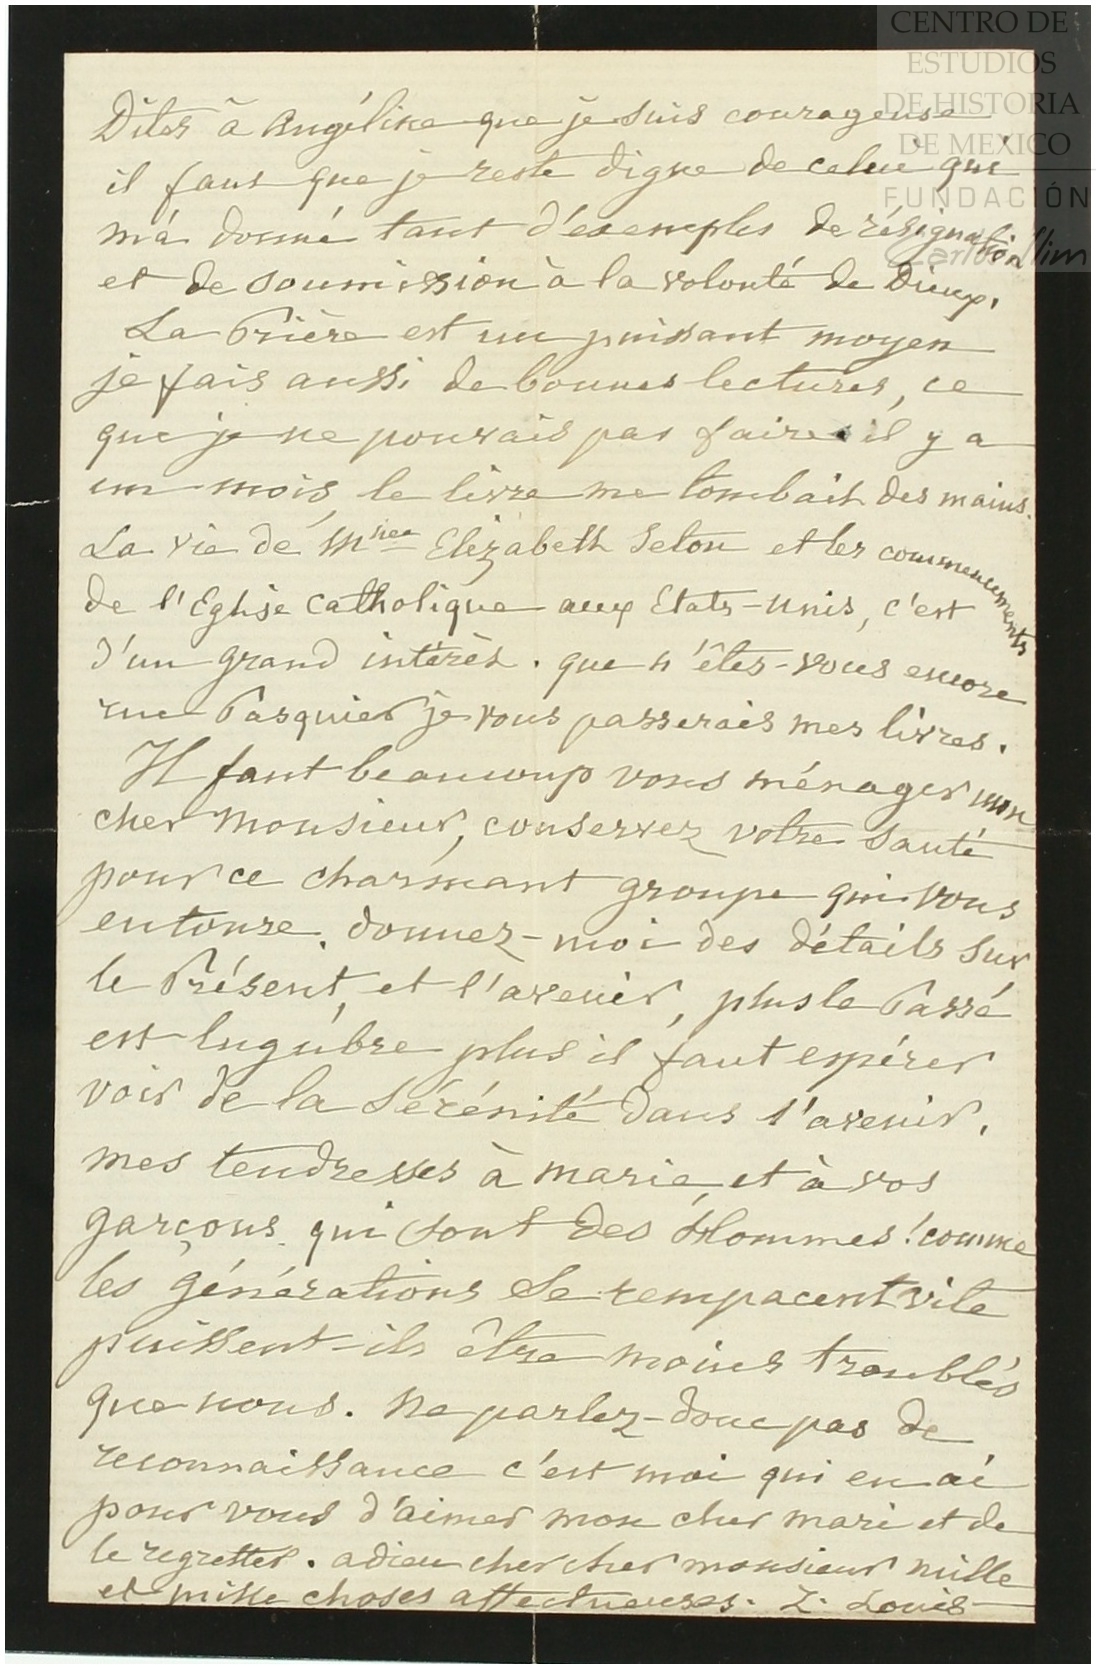 CENTRO DE
ESTUDIOS
DE HISTORIA
DE MEXICO
FUNDACIÓN
Carlos Slim
Dites à Angéline que je suis courageuse
il faut que je reste digne de celui qui
m'a donné tant d'exemples de résignation
et de soumission à la volonté de Dieu.
La Prière est un puissant moyen
je fais aussi de bonnes lectures, ce
que je ne pouvais pas faire il y a
un mois, le livre me tombait des mains.
La vie de Mme Elizabeth Seton et les commencements
de l'Eglise Catholique aux Etats-Unis, c'est
d'un grand intérèt. que n'êtes-vous encore
rue Pasquier je vous passerais mes livres.
Il faut beaucoup vous ménager mon
cher Monsieur, conservez votre santé
pour ce charmant groupe qui vous
entoure. donnez-moi des détails sur
le Présent, et l'avenir, plus le Passé
est lugubre plus il faut espérer
voir de la Sérénité dans l'avenir.
mes tendresses à marie, et à vos
garçons qui sont des Hommes! comme
les générations se rempacent vite
puissent-ils être moins troublés
que nous. Ne parlez-donc pas de
reconnaissance c'est moi qui en ai
pour vous d'aimer mon cher mari et de
le regretter. adieu cher cher monsieur mille
et mille choses affectueuses. Z. Louis